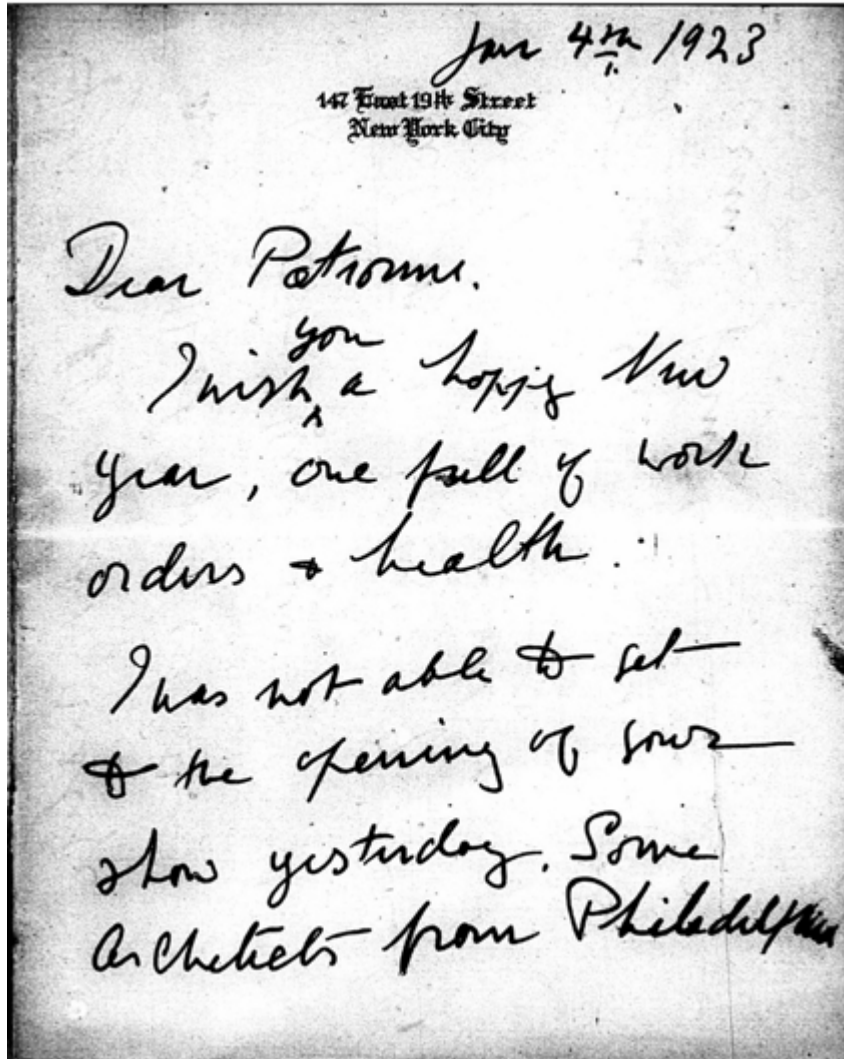 Jan 4th 1923
147 East 19th Street
New York City
Dear Patronne.
you
I wish a happy New
year, one full of work
orders & health.
I was not able to get
to the opening of your
show yesterday. Some
architects from Philadelphia